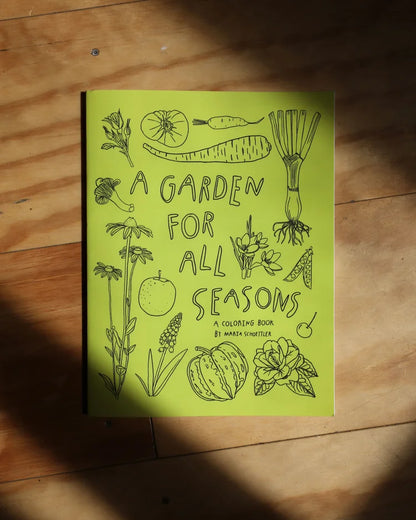 A GARDEN
FOR
ALL
SEASONS
A COLORING BOOK
BY MARIA SCHOETTLER